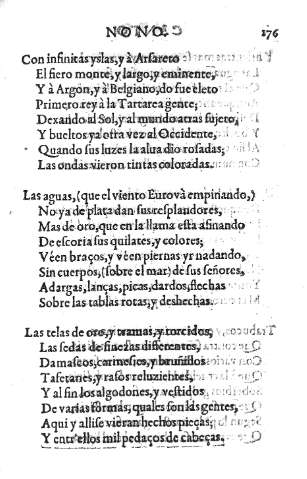 NONO. 176
Con infinitas yslas, y à Arsareto
El fiero monte, y largo, y eminente,
Y à Argòn, y à Belgiano, do fue eleto
Primero rey à la Tartarea gente;
Dexando al Sol, y al mundo atras sujeto,
Y bueltos ya otra vez al Occidente,
Quando sus luzes la alua dio rosadas;
Las ondas vieron tintas coloradas.
Las aguas, (que el viento Euro và empinando,)
No ya de plata dan sus resplandores,
Mas de oro, que en la llama està afinando
De escoria sus quilates, y colores;
Vèen braços, y vèen piernas yr nadando,
Sin cuerpos, (sobre el mar) de sus señores,
Adargas, lanças, picas, dardos, flechas
Sobre las tablas rotas, y deshechas.
Las telas de oro, y tramas, y torcidos,
Las sedas de finezas diferentes,
Damascos, carmesies, y bruñidos
Tafetanes, y rasos reluzientes,
Y al fin los algodones, y vestidos
De varias formas, quales son las gentes,
Aqui y alli se vieran hechos pieças;
Y entre ellos mil pedaços de cabeças.